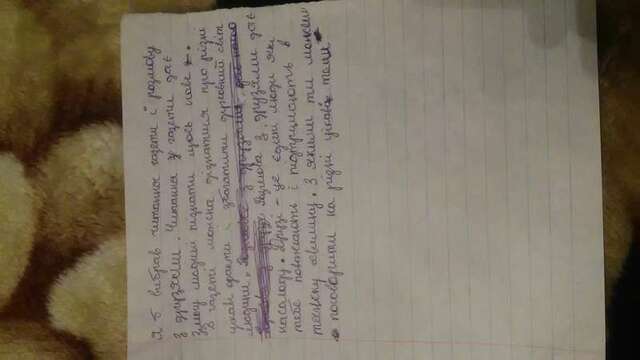 Я б вибрав читання газети і розмову
з друзями. Читання у газети дає
змогу людині пізнати щось нове.
В газеті можна дізнатися про різні
цікаві факти і збагатити духовний світ
людини.
Розмова з друзями дає
насолоду. Друзі - це єдині люди які
тебе поважають і підтримають в
тяжку хвилину. З якими ти можеш
поговорити на різні цікаві теми